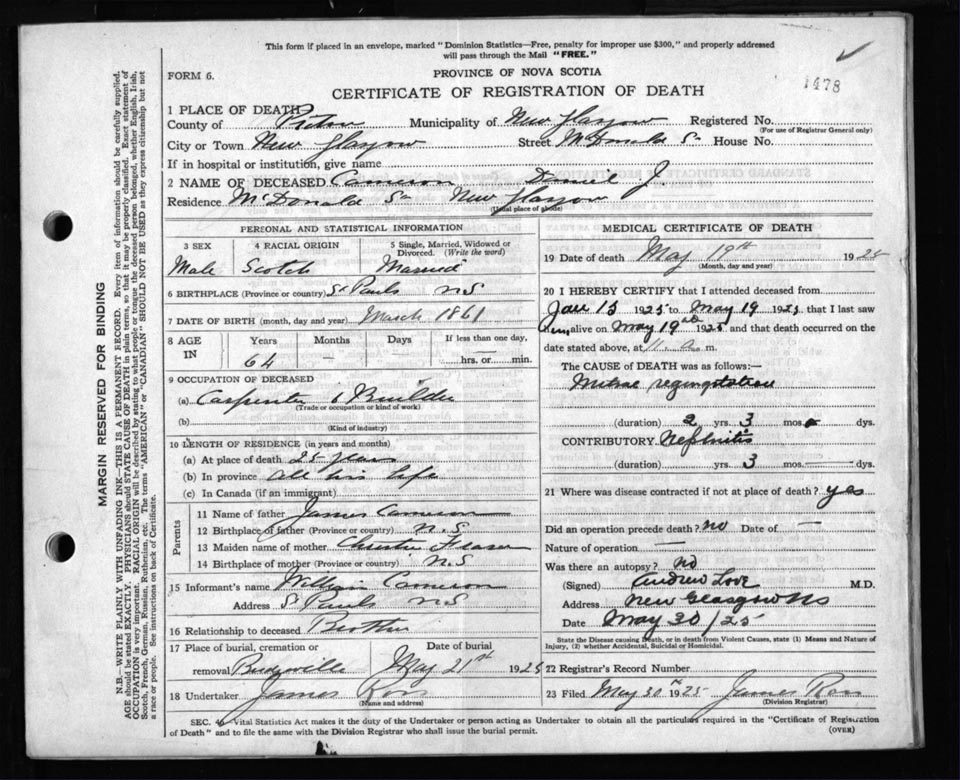 This form if placed in an envelope, marked "Dominion Statistics—Free, penalty for improper use $300," and properly addressed
will pass through the Mail "FREE."
FORM 6.
PROVINCE OF NOVA SCOTIA
1478
CERTIFICATE OF REGISTRATION OF DEATH
1 PLACE OF DEATH
County of Pictou Municipality of New Glasgow Registered No.
(For use of Registrar General only)
City or Town New Glasgow Street McDonald St House No.
If in hospital or institution, give name
2 NAME OF DECEASED Cameron Daniel J
Residence McDonald St New Glasgow
(Usual place of abode)
PERSONAL AND STATISTICAL INFORMATION
3 SEX 4 RACIAL ORIGIN 5 Single, Married, Widowed or
Divorced. (Write the word)
Male Scotch Married
6 BIRTHPLACE (Province or country) St Pauls N S
7 DATE OF BIRTH (month, day and year) March 1861
8 AGE IN Years Months Days If less than one day,
64 — — — hrs. or min.
9 OCCUPATION OF DECEASED
(a) Carpenter & Builder
(Trade or occupation or kind of work)
(b)
(Kind of industry)
10 LENGTH OF RESIDENCE (in years and months)
(a) At place of death 25 years
(b) In province All his life
(c) In Canada (if an immigrant)
Parents
11 Name of father James Cameron
12 Birthplace of father (Province or country) N.S
13 Maiden name of mother Christine Fraser
14 Birthplace of mother (Province or country) N.S
15 Informant's name William Cameron
Address St Pauls N S
16 Relationship to deceased Brother
17 Place of burial, cremation or Date of burial
removal Bridgeville May 21st 1925
18 Undertaker James Ross
(Name and address)
MEDICAL CERTIFICATE OF DEATH
19 Date of death May 19th 1925
(Month, day and year)
20 I HEREBY CERTIFY that I attended deceased from
Jan 15 1925 to May 19 1925 that I last saw
him alive on May 19th 1925 and that death occurred on the
date stated above, at 11 a. m.
The CAUSE of DEATH was as follows:—
Mitral regurgitation
(duration) 2 yrs. 3 mos. dys.
CONTRIBUTORY Nephritis
(duration) yrs. 3 mos. dys.
21 Where was disease contracted if not at place of death? yes
Did an operation precede death? no Date of —
Nature of operation —
Was there an autopsy? no
(Signed) Andrew Love M.D.
Address New Glasgow NS
Date May 30/25
State the Disease causing Death, or in death from Violent Causes, state (1) Means and Nature of
Injury, (2) whether Accidental, Suicidal or Homicidal.
22 Registrar's Record Number
23 Filed May 30th 1925 James Ross
(Division Registrar)
SEC. Vital Statistics Act makes it the duty of the Undertaker or person acting as Undertaker to obtain all the particulars required in the "Certificate of Registration
of Death" and to file the same with the Division Registrar who shall issue the burial permit. (OVER)
MARGIN RESERVED FOR BINDING
N.B.—WRITE PLAINLY WITH UNFADING INK—THIS IS A PERMANENT RECORD. Every item of information should be carefully supplied.
AGE should be stated EXACTLY. PHYSICIANS should STATE CAUSE OF DEATH in plain terms, so that it may be properly classified. Exact statement of
OCCUPATION is very important. RACIAL ORIGIN will be described by stating to what people or tongue the deceased person belonged, whether English, Irish,
Scotch, French, German, Russian, Ruthenian, etc. The terms "AMERICAN" or "CANADIAN" SHOULD NOT BE USED as they express citizenship but not
a race or people. See instructions on back of Certificate.